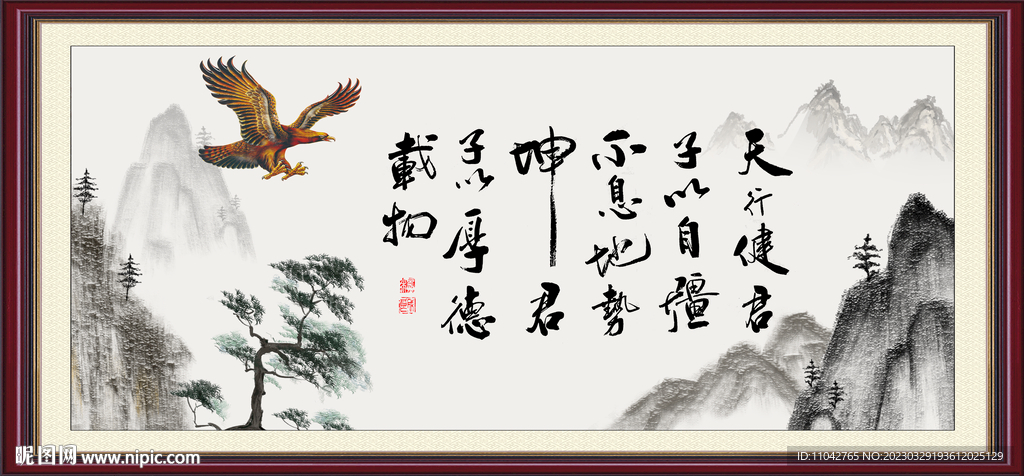 天行健君
子以自疆
不息地勢
坤君
子以厚德
載物
昵图网 www.nipic.com
ID:11042765 NO:20230329193612025129